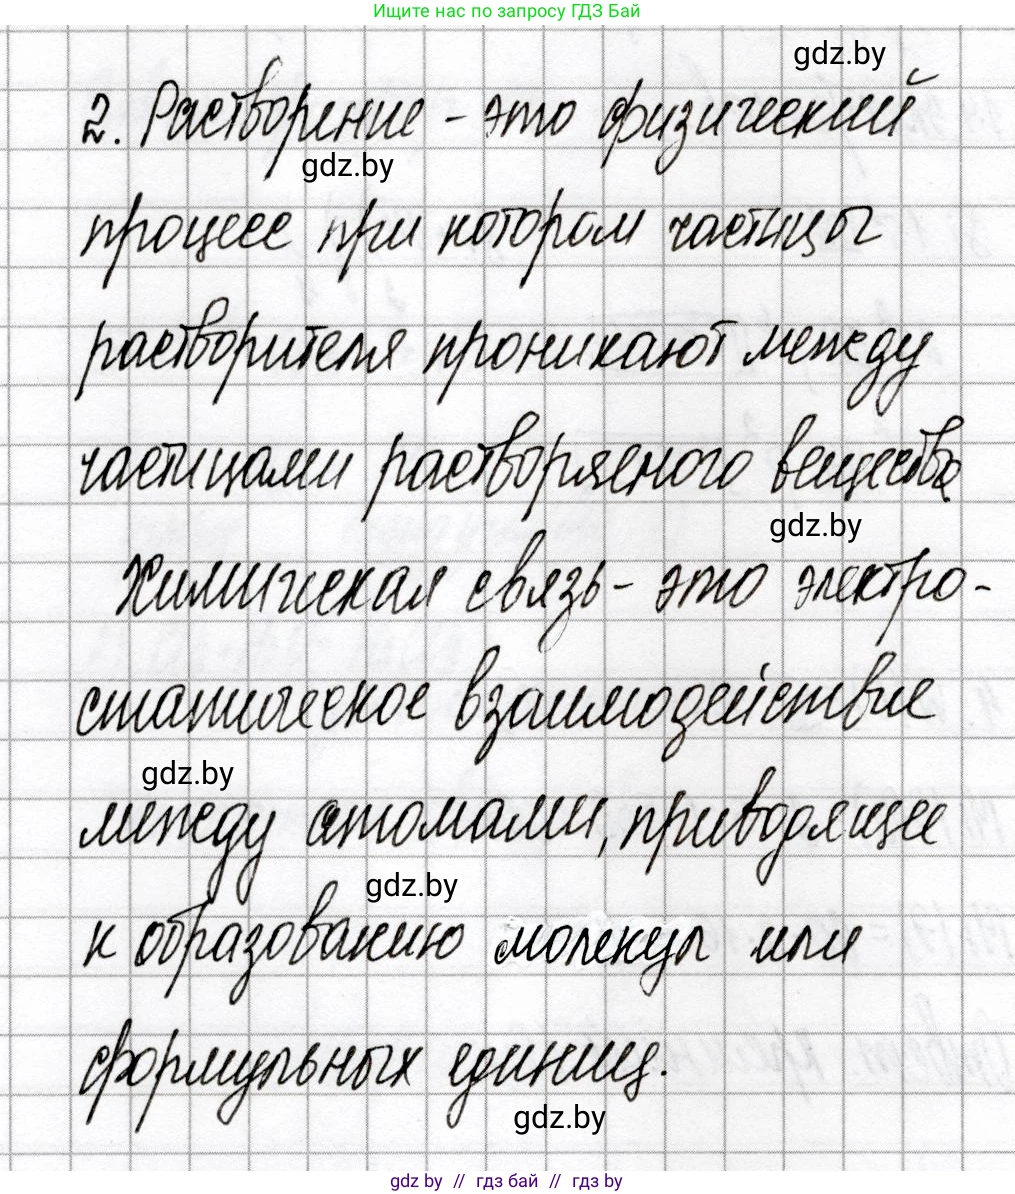 Ищите нас по запросу ГДЗ Бай
gdz.by
2. Растворение - это физический
gdz.by
процесс при котором частицы
растворителя проникают между
частицами растворяемого вещества.
gdz.by
Химическая связь - это электро-
статическое взаимодействие
gdz.by
между атомами, приводящее
gdz.by
к образованию молекул или
формульных единиц.
gdz.by
gdz by // гдз бай // гдз by